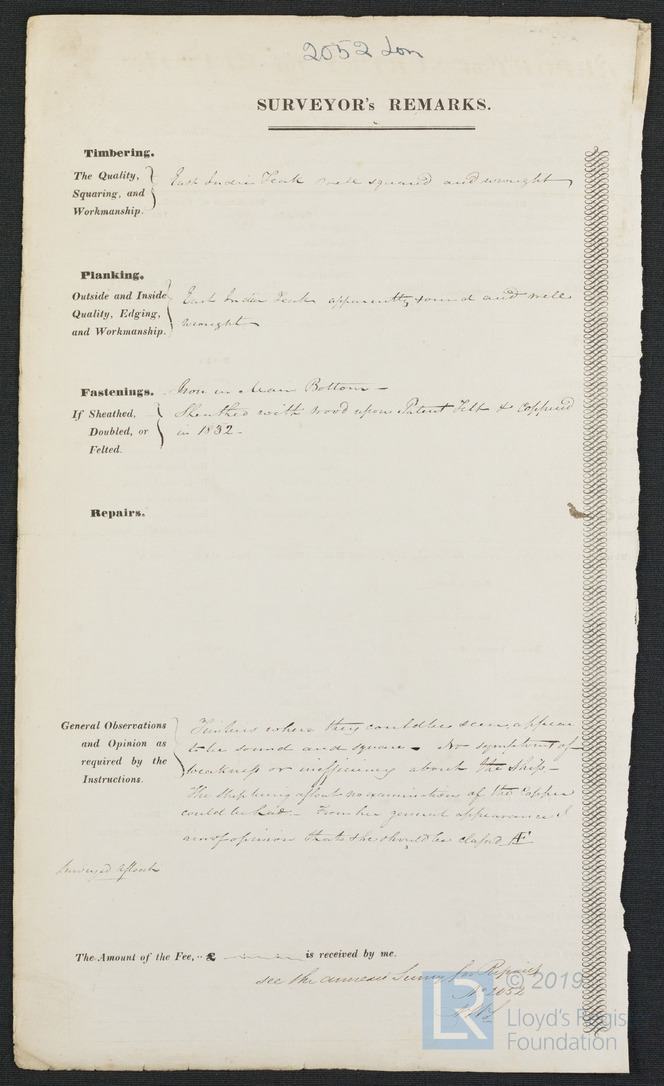 2052 Lon
SURVEYOR's REMARKS.
Timbering.
The Quality,
Squaring, and
Workmanship.
East India Teak well squared and wrought
Planking.
Outside and Inside
Quality, Edging,
and Workmanship.
East India Teak apparently sound and well
wrought
Fastenings.
Iron in Main Bottom -
If Sheathed,
Doubled, or
Felted.
Sheathed with wood upon Patent Felt & Coppered
in 1832 -
Repairs.
General Observations
and Opinion as
required by the
Instructions.
Timbers where they could be seen, appear
to be sound and square - No symptoms of
weakness or inefficiency about the Ship -
The Ship being afloat no examination of the Copper
could be had - From her general appearance I
am of opinion that she should be classed Æ
Surveyed afloat
The Amount of the Fee, .. £ is received by me.
see the annexed Survey for Repairs
No 2052
© 2019
LR
Lloyd's Register
Foundation